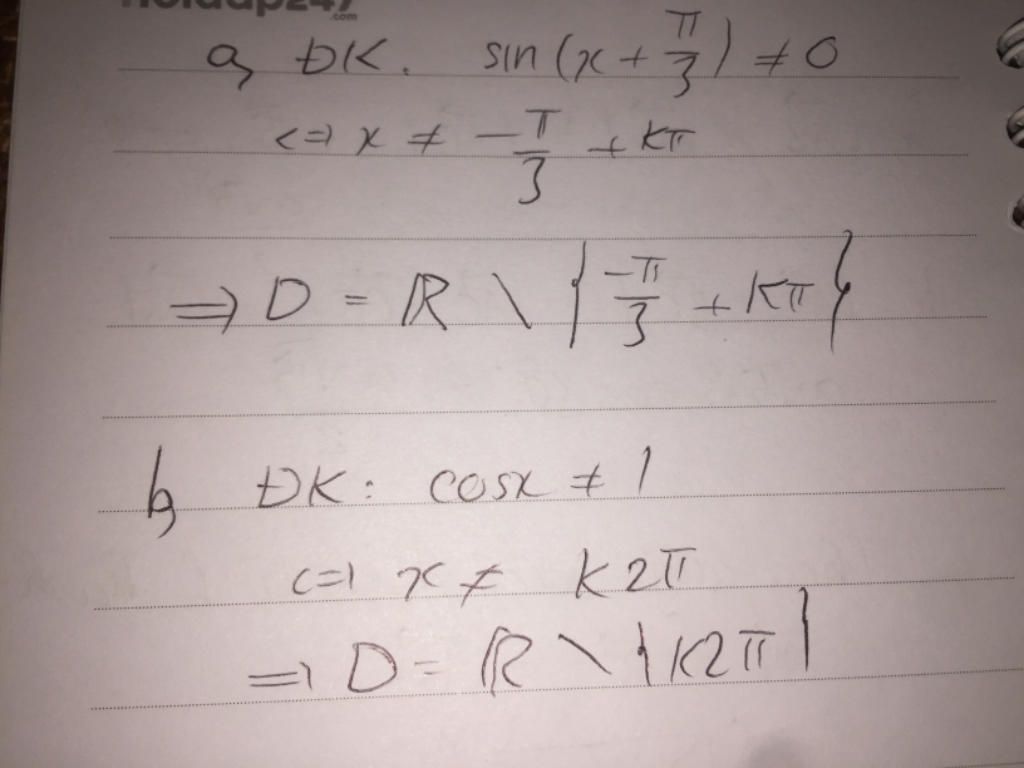 hoidap247
.com
a, ĐK. sin(x + π/3) ≠ 0
<=> x ≠ -π/3 + kπ
=> D = ℝ \ { -π/3 + kπ }
b, ĐK: cosx ≠ 1
<=> x ≠ k2π
=> D = ℝ \ { k2π }